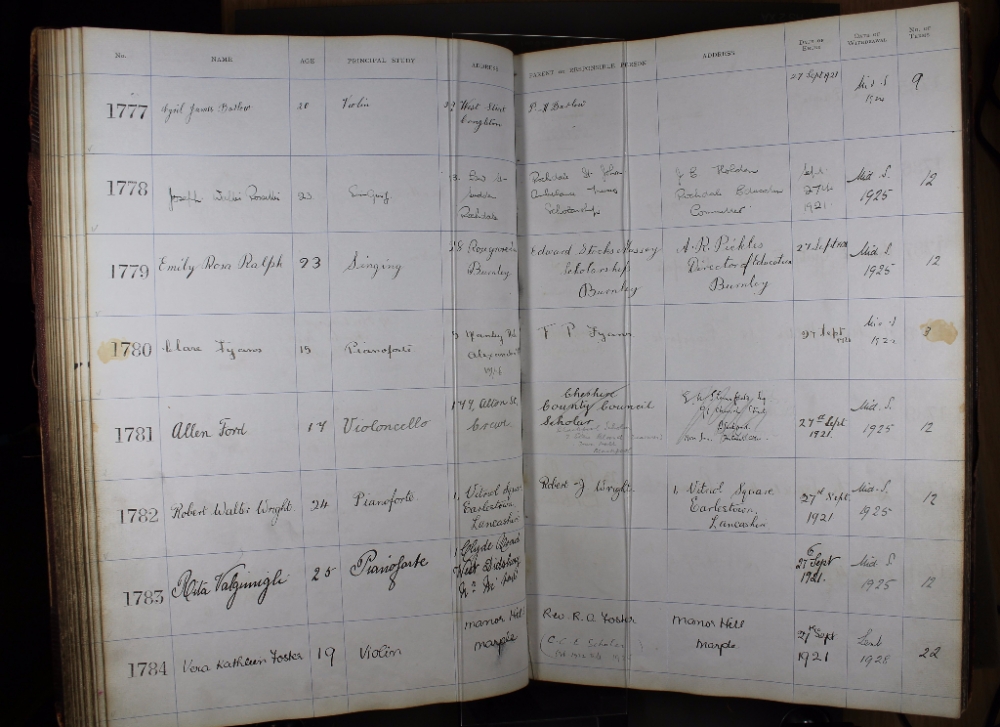 No. NAME AGE PRINCIPAL STUDY ADDRESS PARENT OR RESPONSIBLE PERSON ADDRESS DATE OF ENTRY DATE OF WITHDRAWAL NO. OF TERMS
1777 James Barlow 20 Violin West Street P. H Barlow 27 Sept 1921 Mid S 9
Congleton
1778 Joseph Walter 23 St Rochdale St John J E Holden Sept. Mid S. 12
Ambulance Rochdale Education 27th 1925
Rochdale Scholarship Committee 1921
1779 Emily Rosa Ralph 23 Singing Edward Stocks Massey A. R. Pickles 27 Sept 1921 Mid S. 12
Burnley Scholarship Director of Education 1925
Burnley Burnley
1780 Clare Tyans 19 Pianoforte Manley Rd F P Tyans 27 Sept Mid S 3
Alexandra 1921 1922
Park
1781 Allen Ford 17 Violoncello 179, Allen St. Cheshire 27th Sept Mid. S. 12
Crewe. County Council 1921. 1925
Scholar
1782 Robert Walter Wright 24 Pianoforte 1, Vitriol Square Robert J Wright 1, Vitriol Square 27th Sept Mid. S. 12
Earlestown, Earlestown, 1921 1925
Lancashire Lancashire
1783 Rita Valgimigli 25 Pianoforte 1, Clyde Road 27 Sept Mid S. 12
West Didsbury 1921. 1925
1784 Vera Kathleen Foster 19 Violin Manor Hill Rev. R. O. Foster Manor Hill 27th Sept Lent 22
Marple Marple 1921 1928